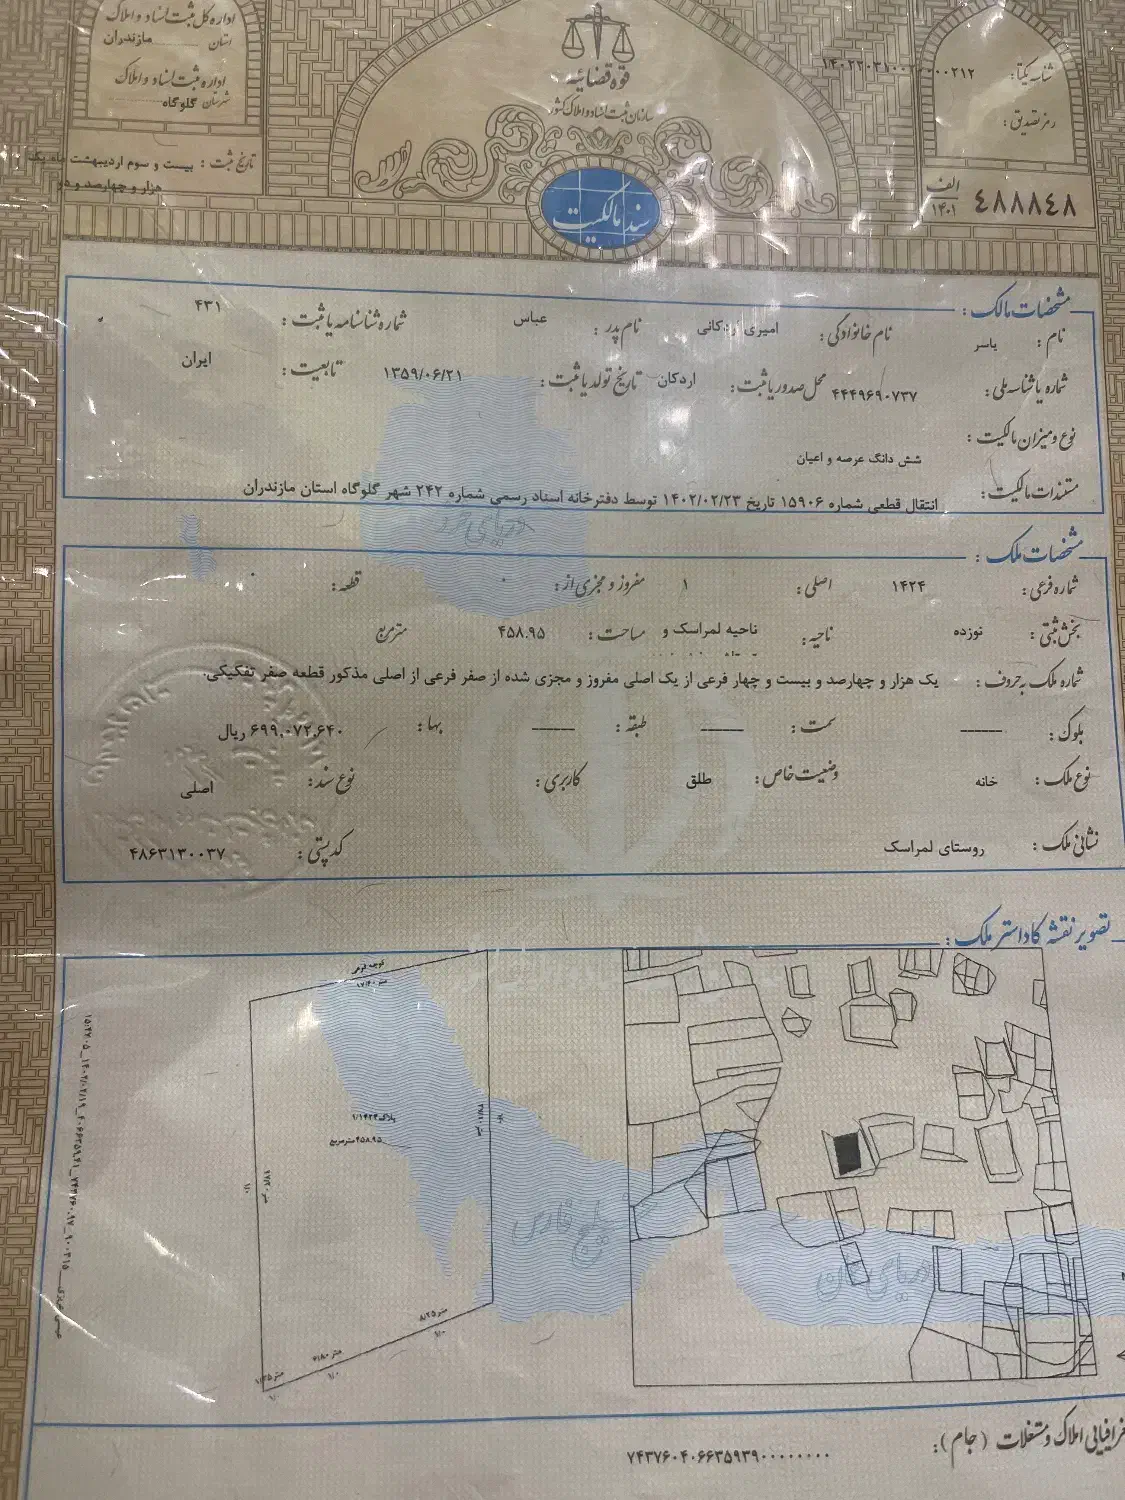 اداره کل ثبت اسناد و املاک
استان مازندران
اداره ثبت اسناد و املاک
شهرستان گلوگاه
تاریخ ثبت : بیست و سوم اردیبهشت ماه یک
هزار و چهارصد و دو
قوه قضائیه
سازمان ثبت اسناد و املاک کشور
سند مالکیت
شناسه یکتا:
رمز تصدیق :
الف
۱۴۰۱
۴۸۸۸۴۸
مشخصات مالک :
نام : یاسر نام خانوادگی : امیری اردکانی نام پدر : عباس شماره شناسنامه یا ثبت : ۴۳۱
شماره یا شناسه ملی : ۴۴۴۹۶۹۰۷۳۷ محل صدور یا ثبت : اردکان تاریخ تولد یا ثبت : ۱۳۵۹/۰۶/۲۱ تابعیت : ایران
نوع و میزان مالکیت :
شش دانگ عرصه و اعیان
مستندات مالکیت : انتقال قطعی شماره ۱۵۹۰۶ تاریخ ۱۴۰۲/۰۲/۲۳ توسط دفترخانه اسناد رسمی شماره ۲۴۲ شهر گلوگاه استان مازندران
مشخصات ملک :
شماره فرعی : ۱۴۲۴ اصلی : ۱ مفروز و مجزی از : ۰ قطعه : ۰
بخش ثبتی : نوزده ناحیه : ناحیه لمراسک و مساحت : ۴۵۸.۹۵ مترمربع
شماره ملک به حروف : یک هزار و چهارصد و بیست و چهار فرعی از یک اصلی مفروز و مجزی شده از صفر فرعی از اصلی مذکور قطعه صفر تفکیکی
بلوک : ------ سمت : ------ طبقه : ------ بها : ۶۹۹,۰۷۲,۶۴۰ ریال
نوع ملک : خانه وضعیت خاص : طلق کاربری : نوع سند : اصلی
نشانی ملک : روستای لمراسک کد پستی : ۴۸۶۳۱۳۰۰۳۷
تصویر نقشه کاداستر ملک :
پلاک ۱/۱۴۲۴
۴۵۸.۹۵ مترمربع
متر ۸/۲۵
متر ۶/۸۰
خلیج فارس
دریای عمان
جغرافیایی املاک و مستغلات (جام):